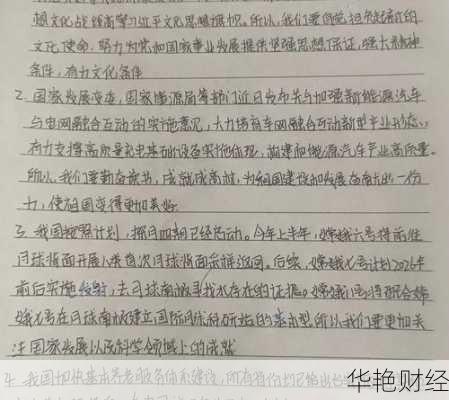 想文化战线高举习近平文化思想旗帜。所以,我们要自觉担负起新的
文化使命,努力为党和国家事业发展提供坚强思想保证,强大精神
条件,有力文化条件
2. 国家发展改革委,国家能源局等部门近日发布关与加强新能源汽车
与电网融合互动的实施意见,大力培育车网融合互动新型产业形态,
有力支撑高质量充电基础设备实施体现,构建和能源汽车产业高质量。
所以,我们要勤奋读书,成就成高材,为祖国建设和发展奋献出一份
力,使祖国变得更加美好
3. 我国按照计划,探月四期已经启动。今年上半年,嫦娥六号将前往
月球背面开展人类首次月球背面采样返回。后续,嫦娥七号计划2026年
前后实施发射,去月球南极寻找水存在的证据。嫦娥八号将配合嫦
娥七号在月球南极建立国际月球科研站的基本型所以我们要更加关
注国家发展以及科学领域上的成就
4. 我国加快基本养老服务体系建设,所有省份均已输出
华艳财经